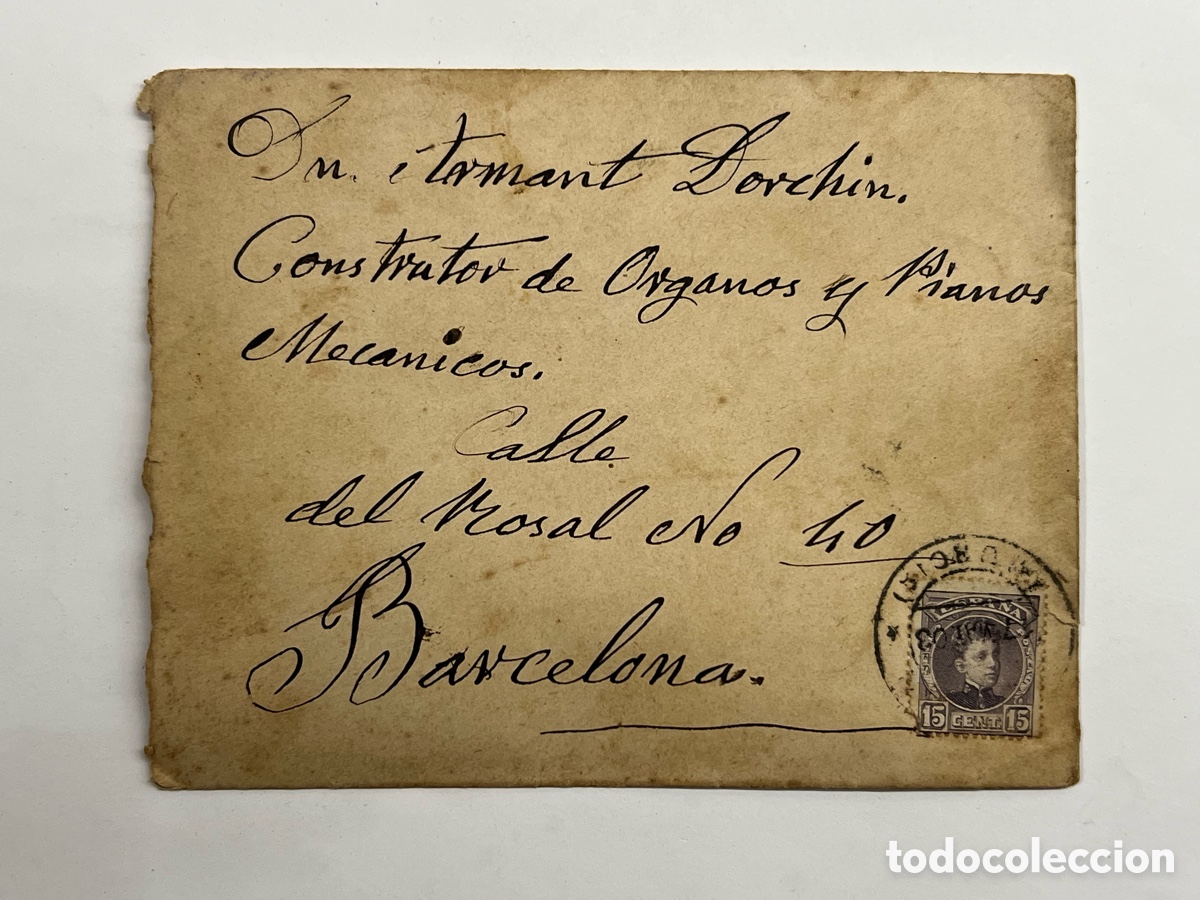 Dn. Armant Dorchin.
Construtor de Organos y Pianos
Mecanicos.
Calle
del Rosal No 40
Barcelona.
ESPAÑA
15 CENT. 15
todocoleccion